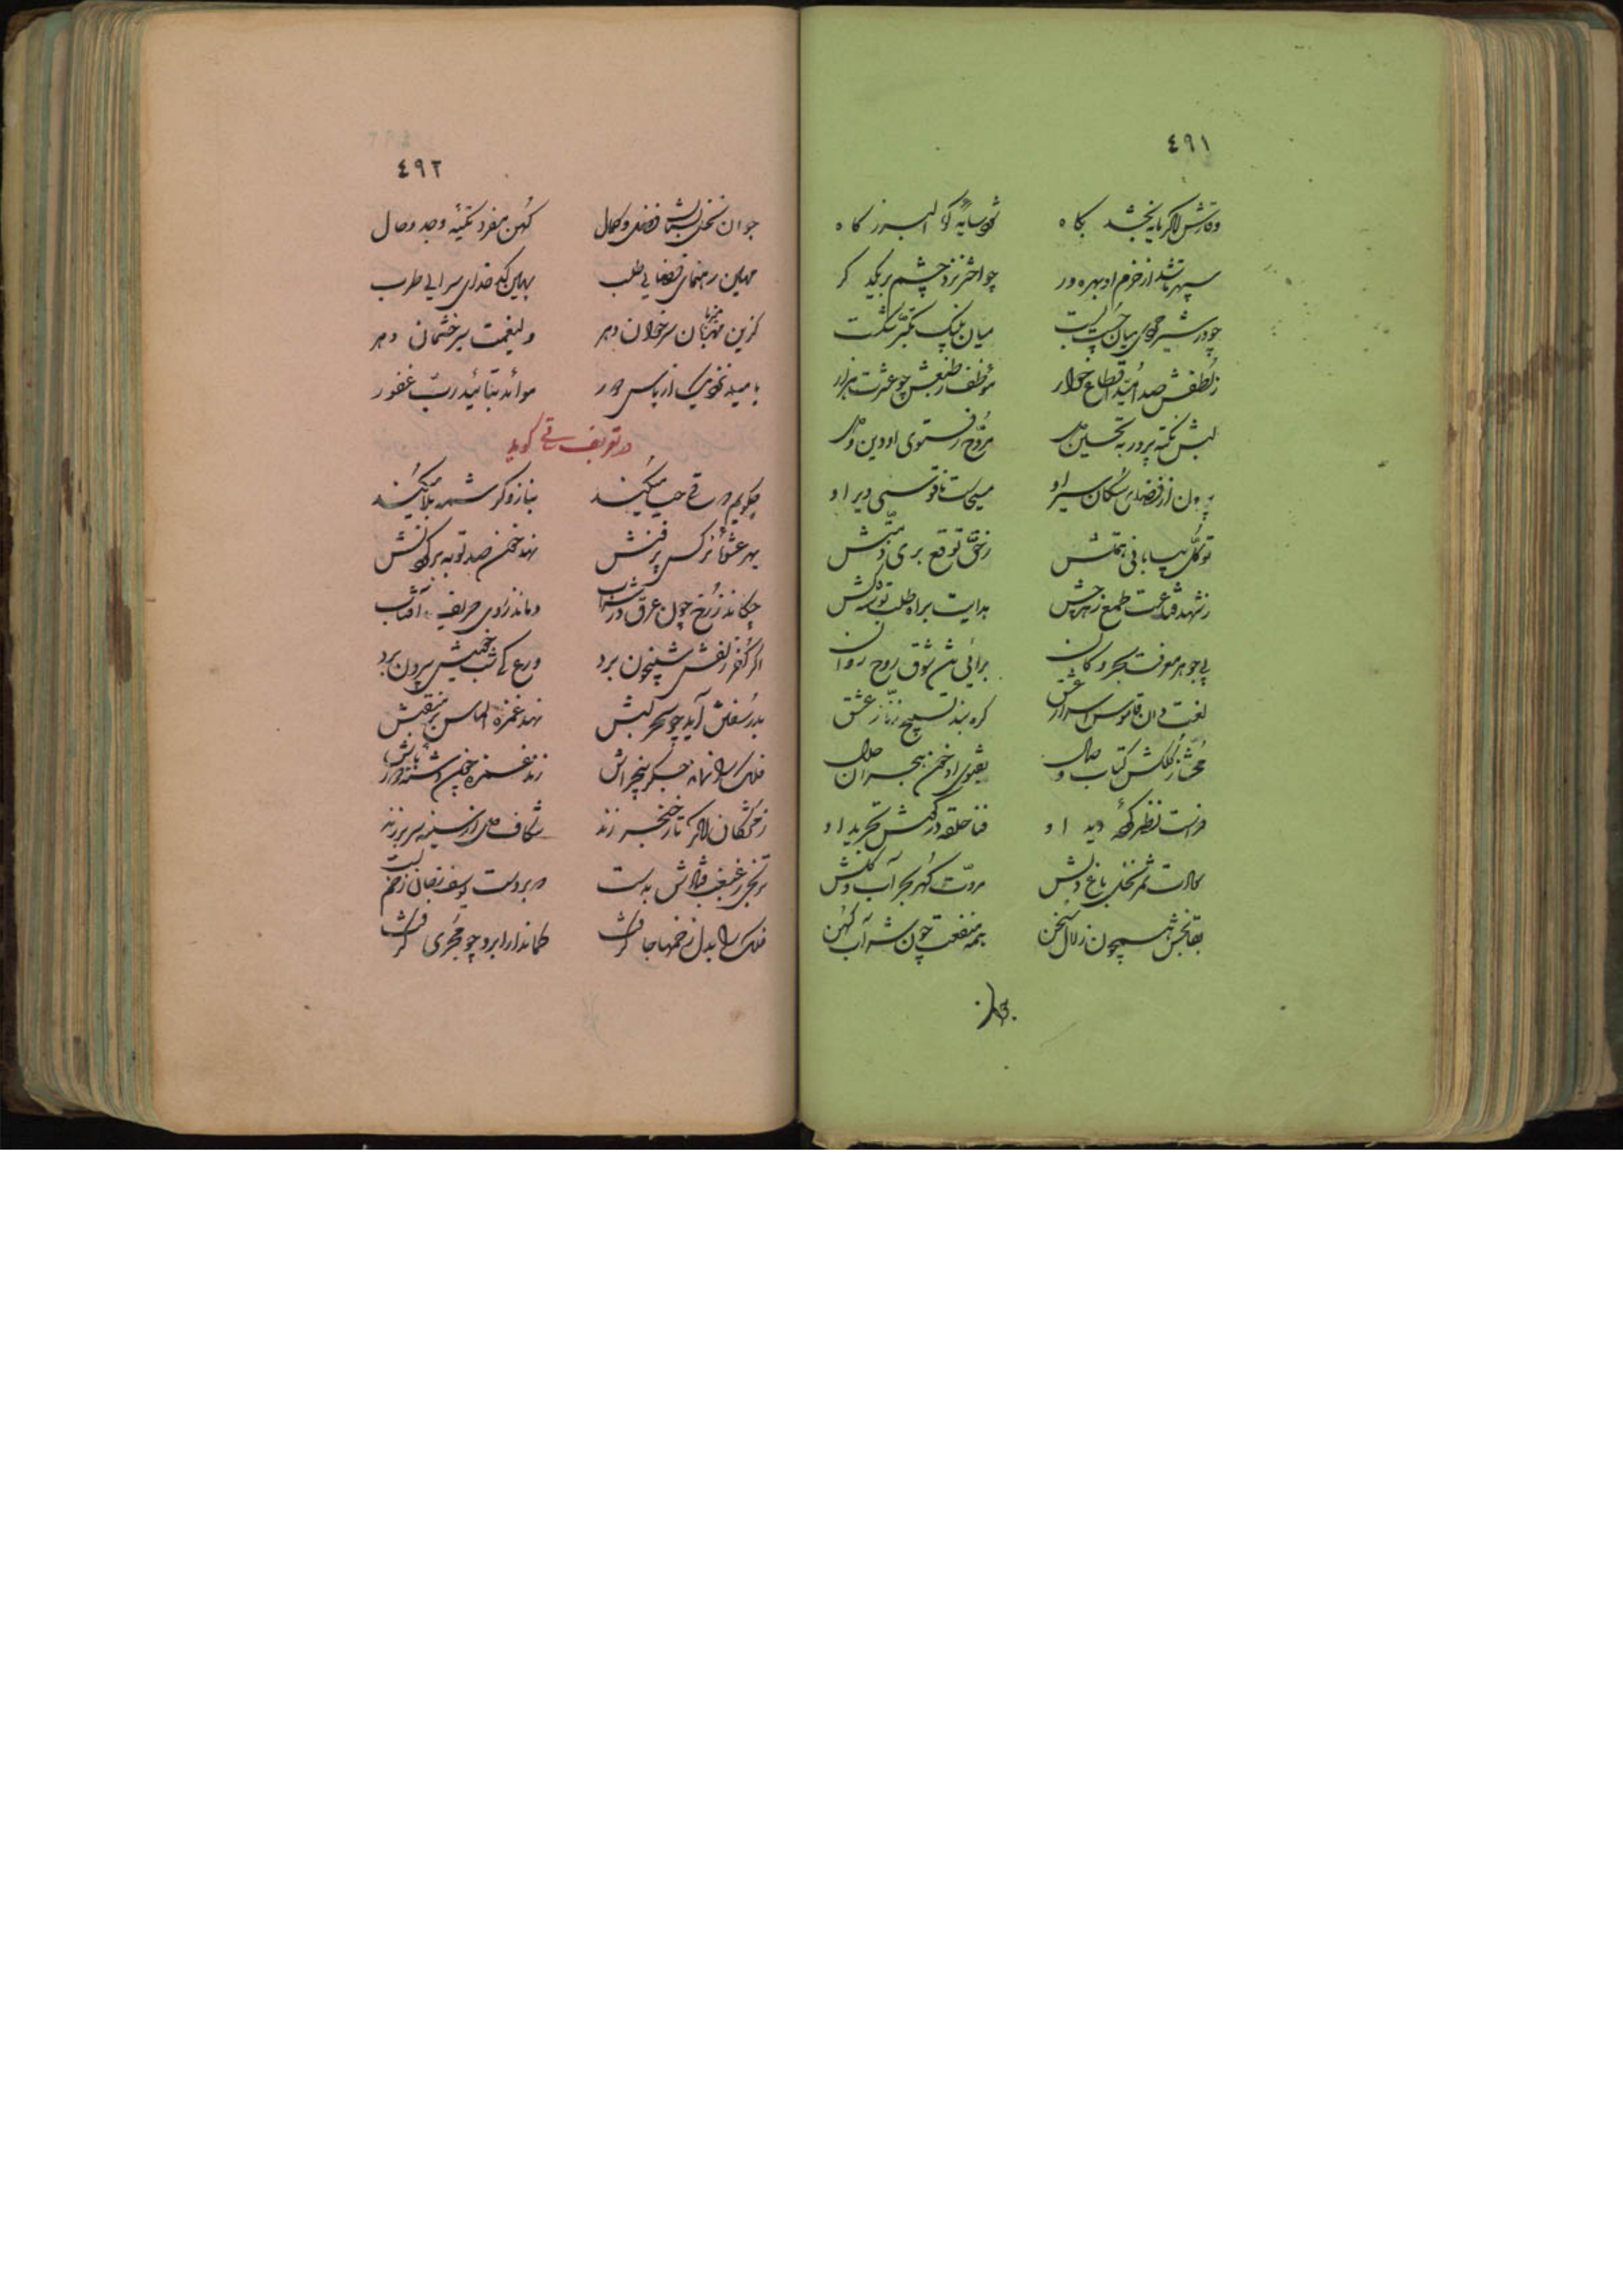 ٤٩١
وقارش اگر مایه بخشد بکاه
شود سایه کوه البرز کاه
سپهر باشد از خرم او بهره ور
چو اختر نزد چشم بر یکد کر
چو در شیر خوی میان چست بست
میان پلنک تکبر شکست
ز لطفش صد امید اقطاع خوار
موظف ز طبعش چو عشرت هزار
لبش نکته پرور به تحسین دل
مروّح ز فتوی او دین و دل
برون از فضای مکان سیر او
مسیحاست ناقوسی دیر او
توکل بیابانی همتش
ز حق توقع بری ذمتش
ز شهد قناعت طمع زهر چش
هدایت براه طلب توشه کش
پی جوهر معرفت بحر و کان
برای تن شوق روح روان
لغت دان قاموس اسرار عشق
کره بند تسبیح زنار عشق
محشّی ز کلکش کتاب وصال
بفتوی او خون هجران حلال
فراست نظر کرده دید او
فنا حلقه در کوش تجرید او
کمالات ثمر نخل باغ دلش
مروّت کهر بحر آب و کلش
بقا بخش همچون زلال سخن
همه منفعت چون شراب کهن
جوان
٤٩٢
جوان نخل بستان فضل و کمال
کهن مفرد تکیه وجد و حال
مهین رهنمای فضای طلب
بهین کدخدای سرای طرب
کزین میزبان سر خوان دهر
ولینعمت سیر چشمان دهر
موائد بتائید ربّ غفور
در تعریف ساقی کوید
چکویم که ساقی چها میکند
بناز و کرشمه بلا میکند
بهر عشوهٔ نرکس پر فنش
نهد خون صد توبه بر کردنش
چکاند ز رخ چون عرق در شراب
دماند ز روی حریف آفتاب
اگر کفر زلفش شبیخون برد
ورع کی شب خویش بیرون برد
بدر سفتن آید چو سحر لبش
نهد غمزه الماس بر مثقبش
فلک را نماند جگر بیخراش
زند غمزه چون دشنه دور باش
ز مژگان اگر تار خنجر زند
شکاف دل از سینه سر بر زند
ترنجی ز غبغب فتادش بدست
در بر دست یوسف زنان زخم بست
فلک را بدل زخمها جا گرفت
کماندار ابرو چو مجری گرفت